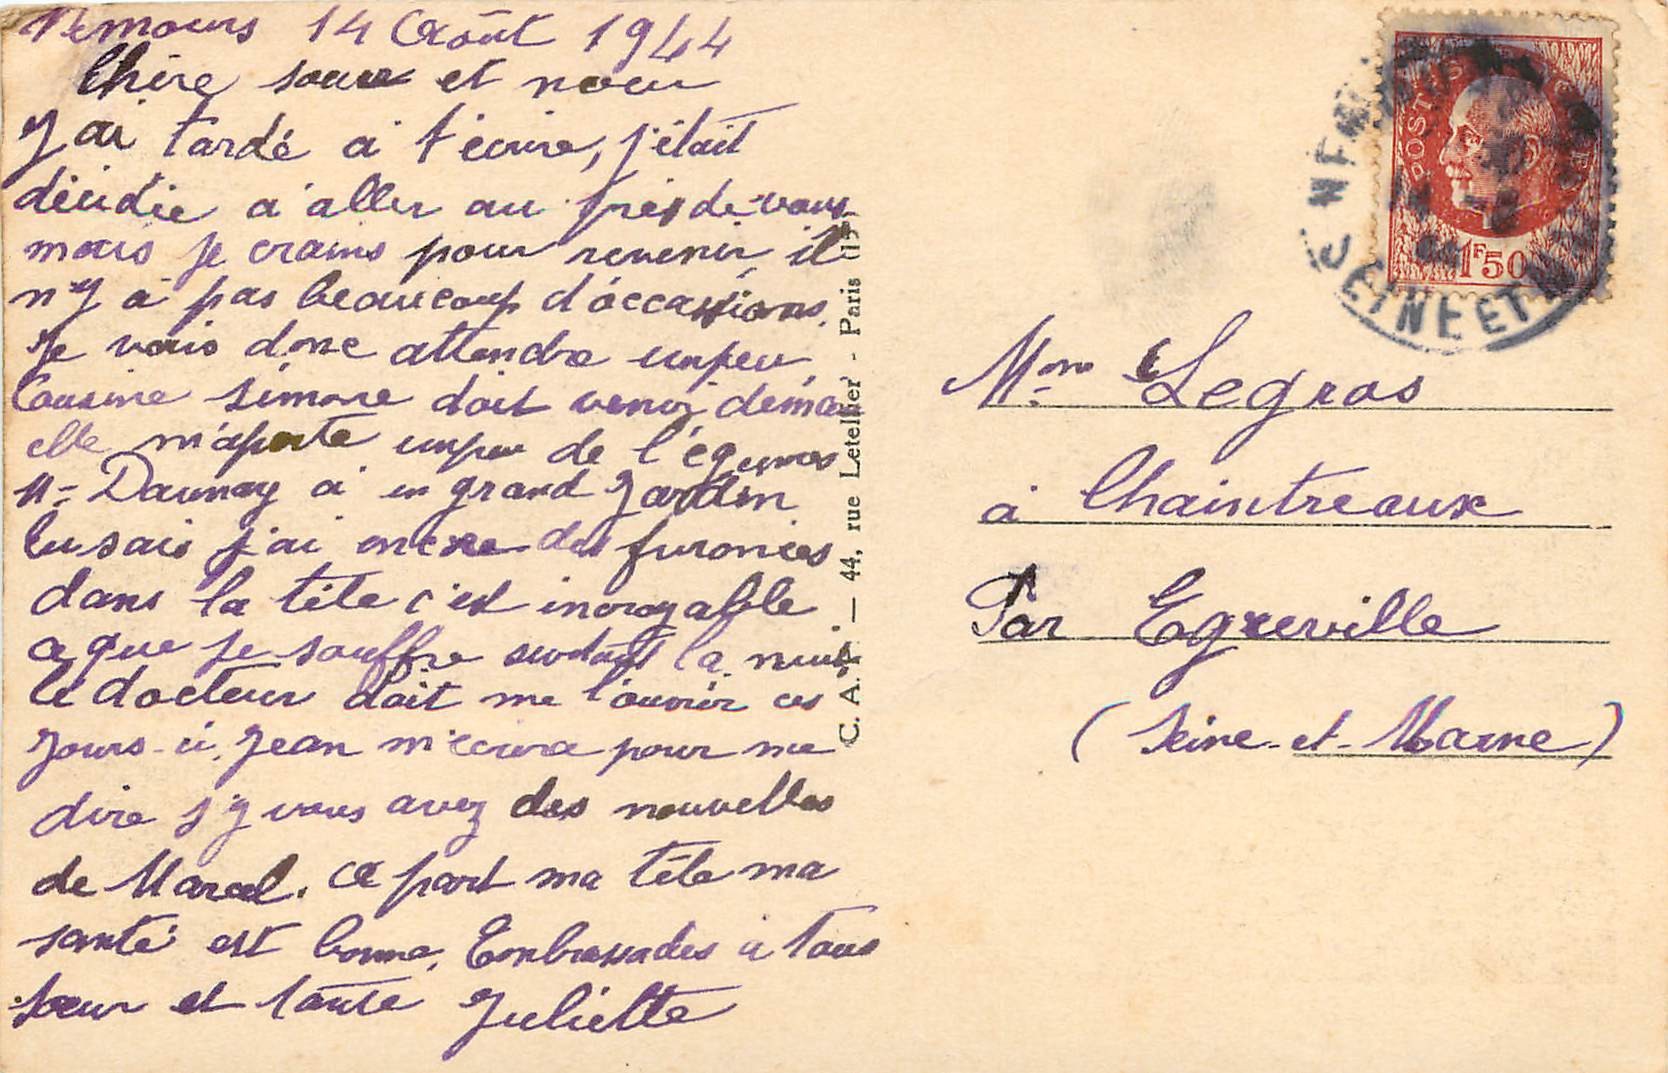 Nemours 14 Août 1944
Chère soeur et noeu
J'ai tardé a t'écrire, j'était
décidée a aller au près de vous
mais je crains pour revenir, il
n'y a pas beaucoup d'occassions,
Je vais donc attendre unpeu,
Cousine Simone doit venir demain
elle m'aporte unpeu de l'égumes
Mr Daunay a un grand Jardin
tu sais j'ai encore des furoncles
dans la tête c'est incroyable
ce que je souffre surtout la nuit
le docteur doit me l'ouvrir ces
Jours-ci, Jean m'écrira pour me
dire s'y vous avez des nouvelles
de Marcel. a part ma tête ma
santé est bonne, Embrassades à tous
soeur et tante Juliette
C. A. P. — 44, rue Letellier - Paris (15
POSTES
1F50
NEMOURS
SEINE ET M
Mme Legros
à Chaintreaux
Par Egreville
(Seine-et-Marne)